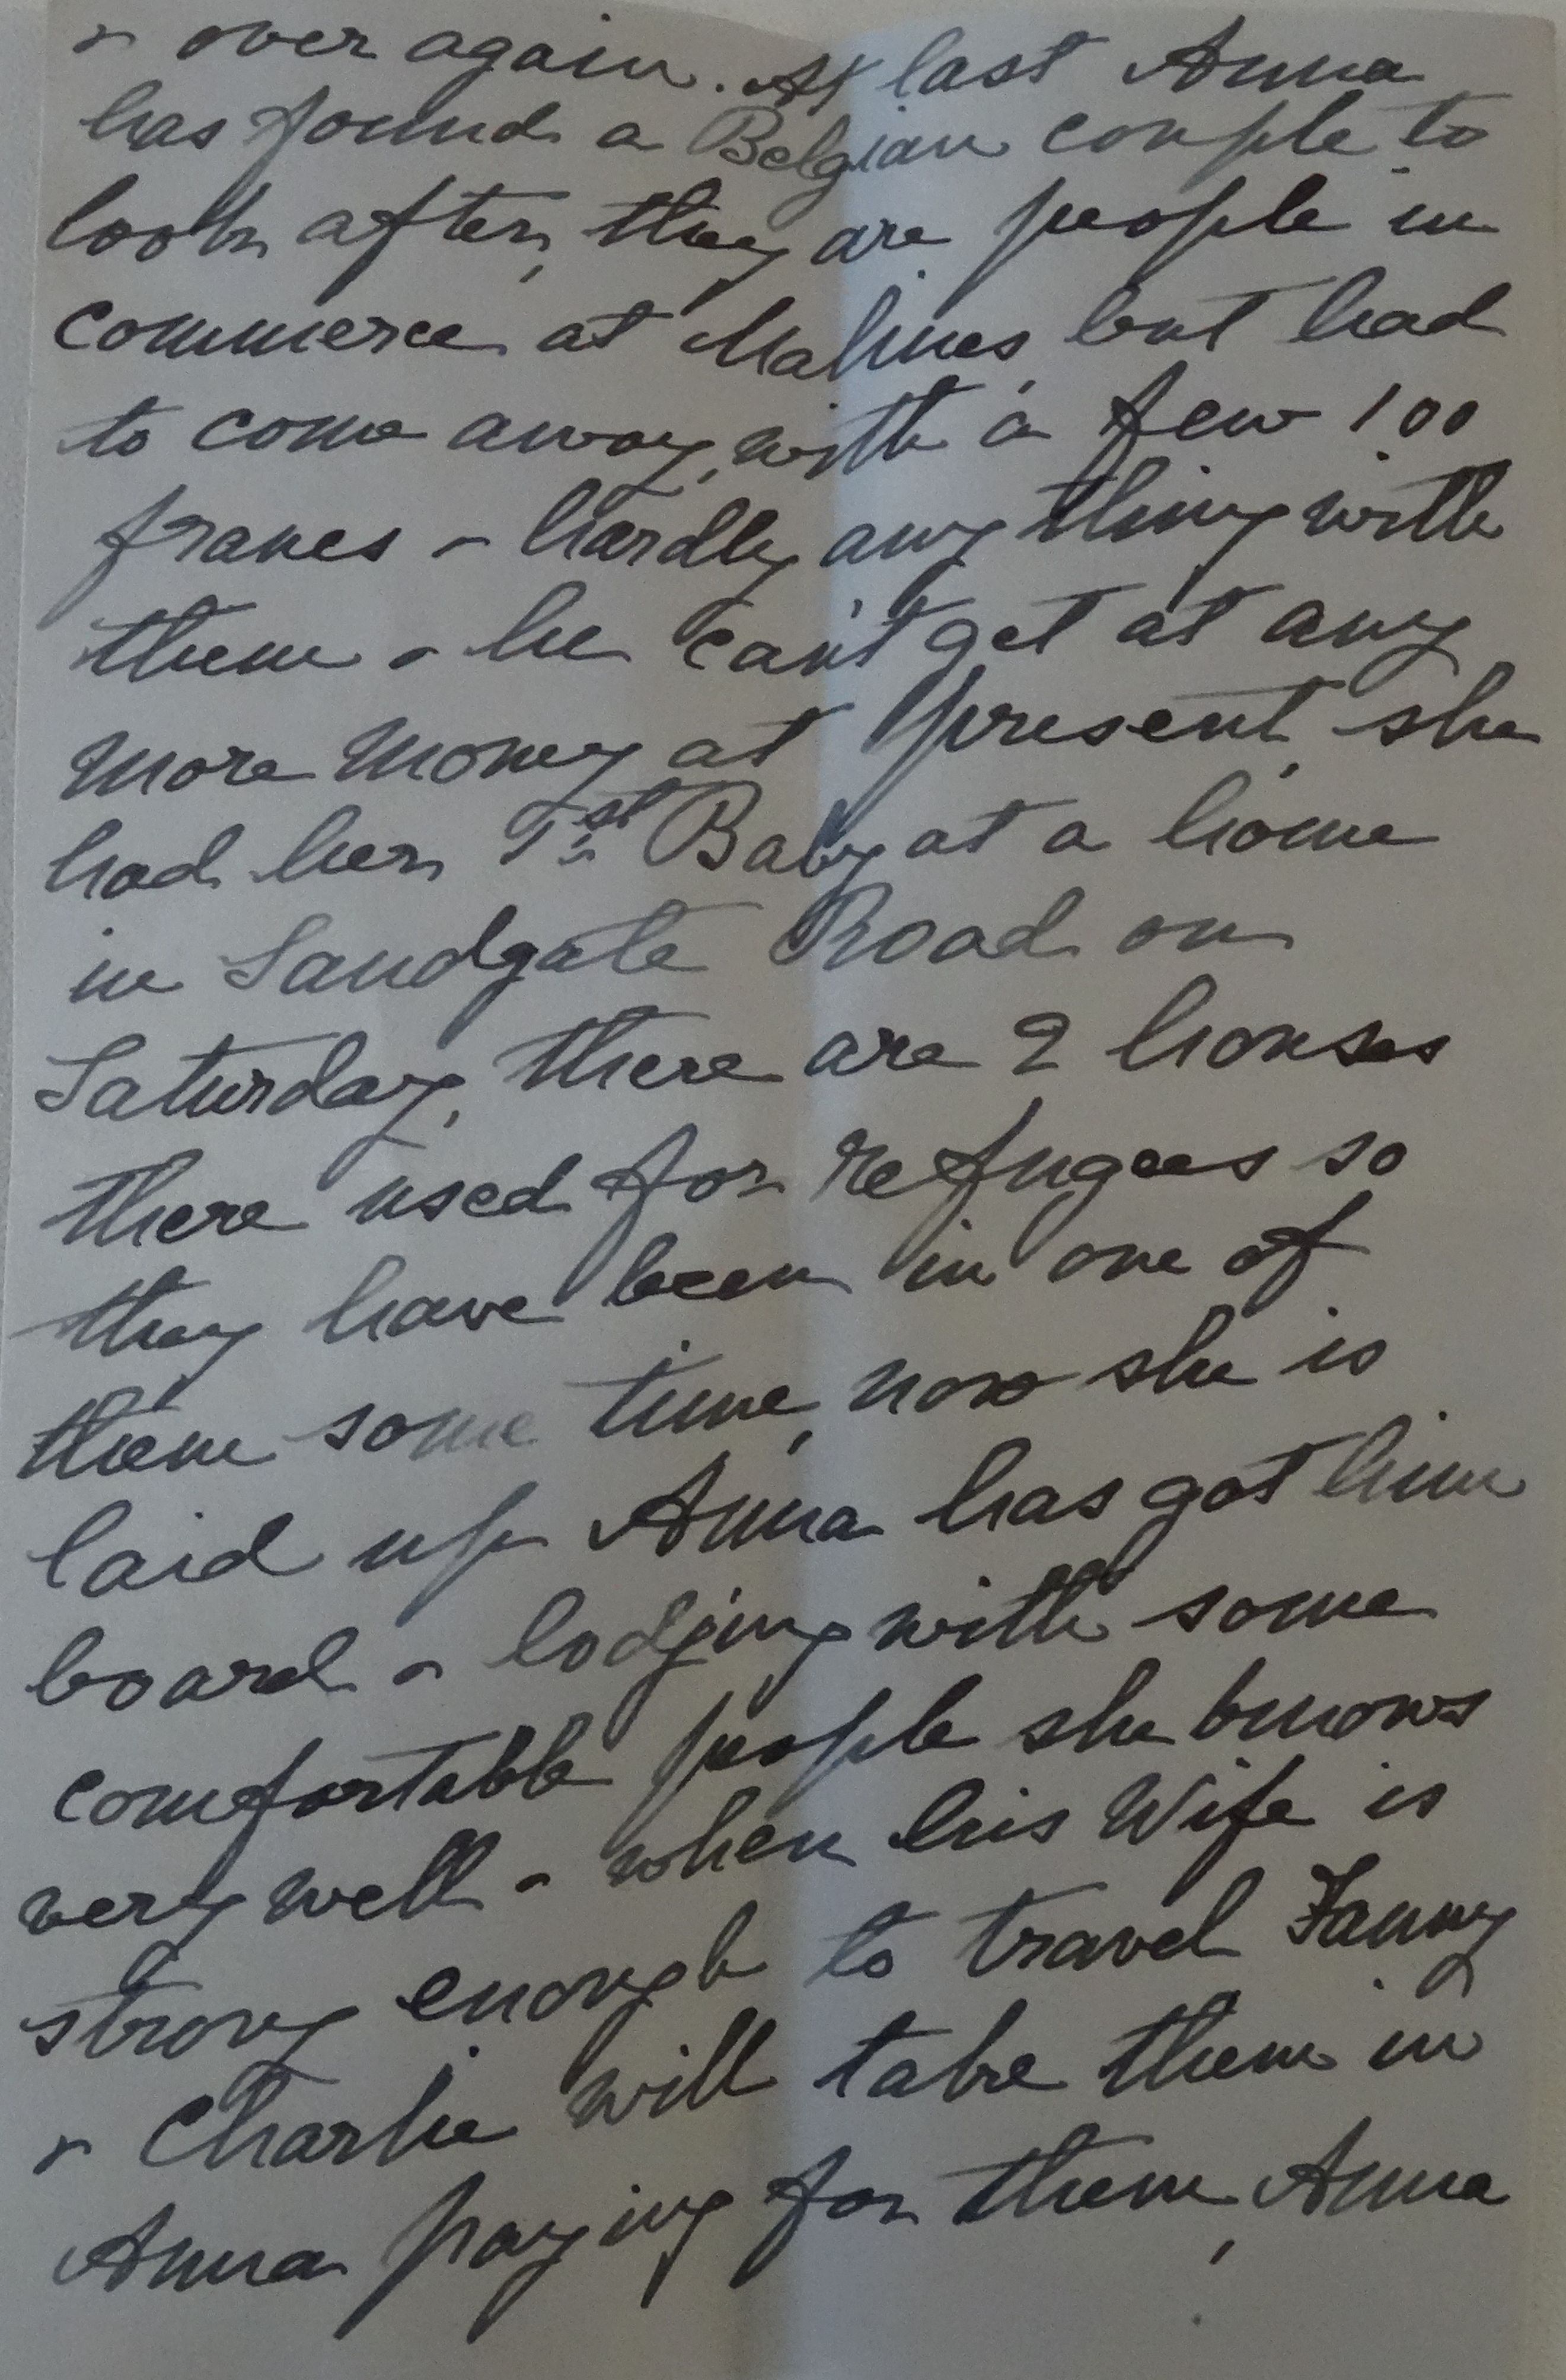 & over again. At last Anna
has found a Belgian couple to
look after, they are people in
commerce at Malines, but had
to come away, with a few 100
francs & hardly any thing with
them & he can't get at any
more money at present, she
had her 1st Baby at a home
in Sandgate Road on
Saturday, there are 2 houses
there used for refugees so
they have been in one of
them some time, now she is
laid up Anna has got him
board & lodging with some
comfortable people she knows
very well & when his Wife is
strong enough to travel Fanny
& Charlie will take them in
Anna paying for them, Anna